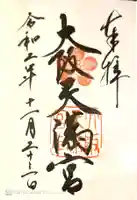 奉拝
大阪天満宮
令和二年十一月二十二日